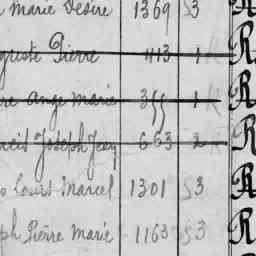 Marie Désiré 1369 S3 R
guste Pierre 413 1 R
re Ange Marie 355 1 R
Joseph Jean 663 2 R
Louis Marcel 1301 S3 R
ph Pierre Marie 1163 S3 R